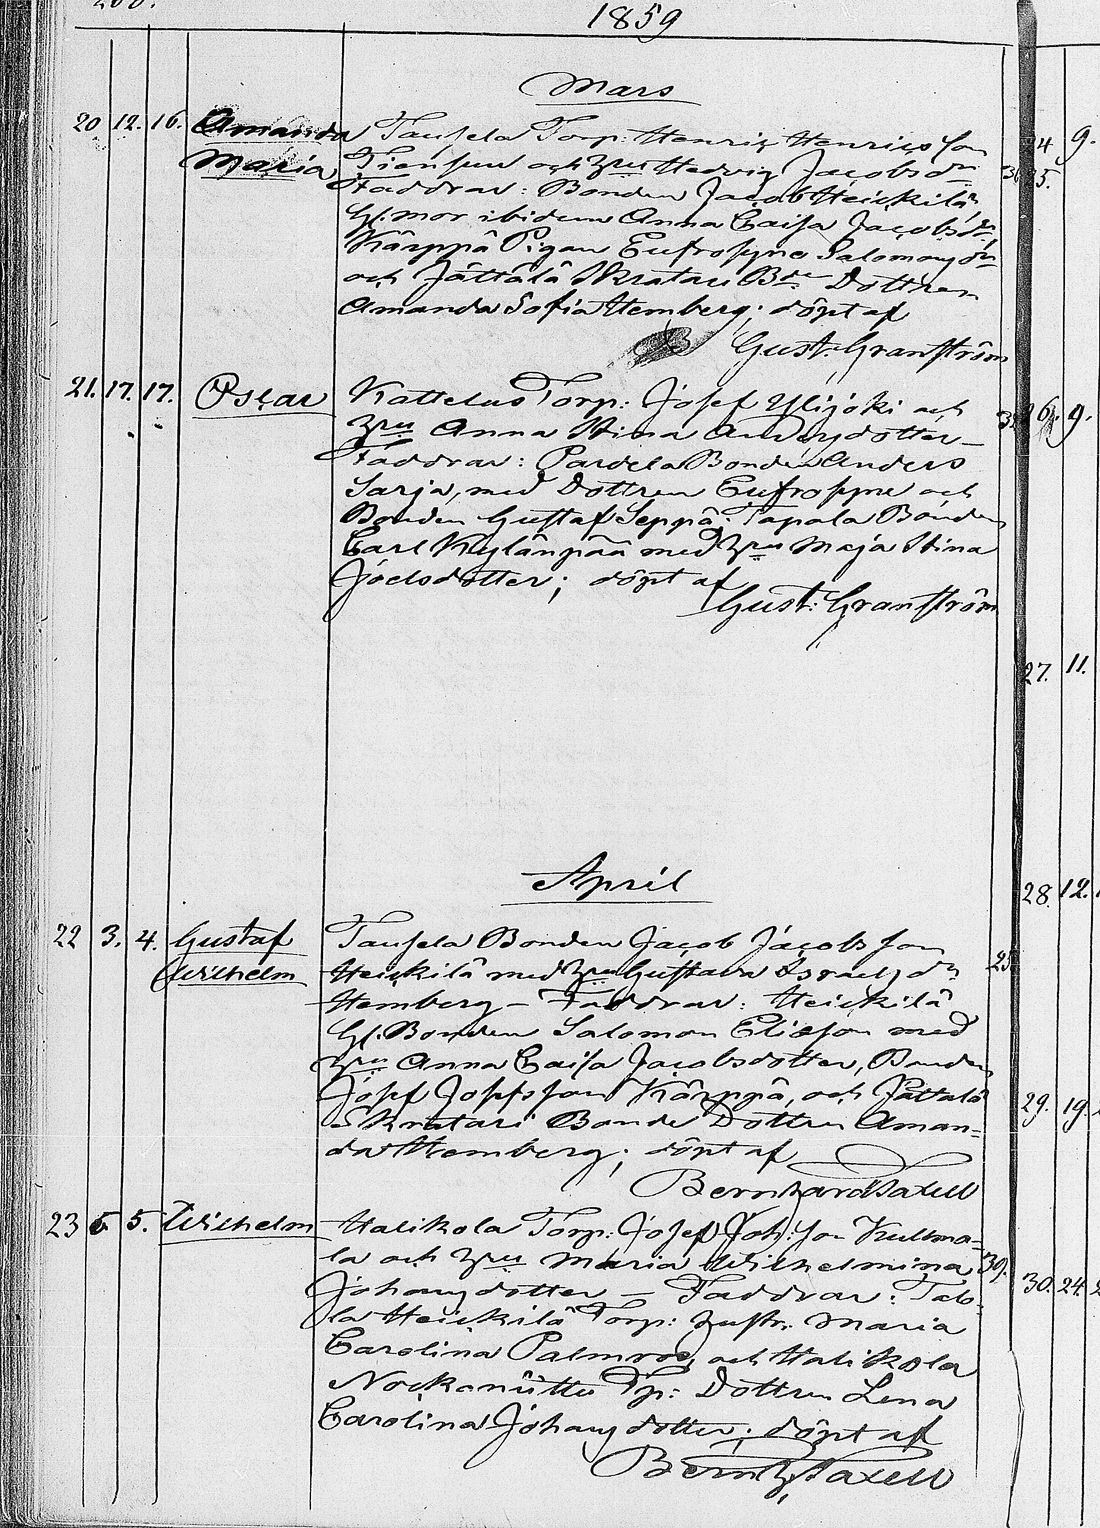 1859
Mars
20. 12. 16. Amanda Taussela Torp: Henric Henricsson
Maria Tiensuu och Hustru Hedvig Jacobsdr
Faddrar: Bonden Jacob Heickilä
Gl. mor ibidem Anna Caisa Jacobsdr,
Kärppä Pigan Eufrosyne Salomonsdr
och Jättälä Skratari Bde Dottren
Amanda Sofia Hemberg; döpt af
Gust: Granström
21. 17. 17. Oscar Kattelus Torp: Josef Ylijoki och
Hru Anna Stina Andersdotter –
Faddrar: Pardela Bonden Anders
Sarja, med Dottren Eufrosyne och
Bonden Gustaf Seppä; Tapala Bonden
Carl Kylänpää med Hru Maja Stina
Joelsdotter; döpt af
Gust: Granström
April
22 3. 4. Gustaf Taussela Bonden Jacob Jacobsson
Wilhelm Heickilä med Hru Gustava Israelsdr
Hemberg – Faddrar: Heickilä
Gl. Bonden Salomon Eliasson med
Hru Anna Caisa Jacobsdotter, Bonden
Josef Josefsson Kärppä, och Jättälä
Skratari Bonde Dottren Aman=
da Hemberg; döpt af
Bernhard Taxell
23 5. Wilhelm Halikola Torp: Josef Joh:son Kulma=
la och Hru Maria Wilhelmina
Johansdotter – Faddrar: Tab-
la Heickilä Torp: hustr. Maria
Carolina Palmroos, och Halikola
Tp: Dottren Lena
Carolina Johansdotter; döpt af
Bernh. Taxell
9.
35.
26. 9.
27. 11.
28. 12.
25
29. 19.
39.
30. 24.